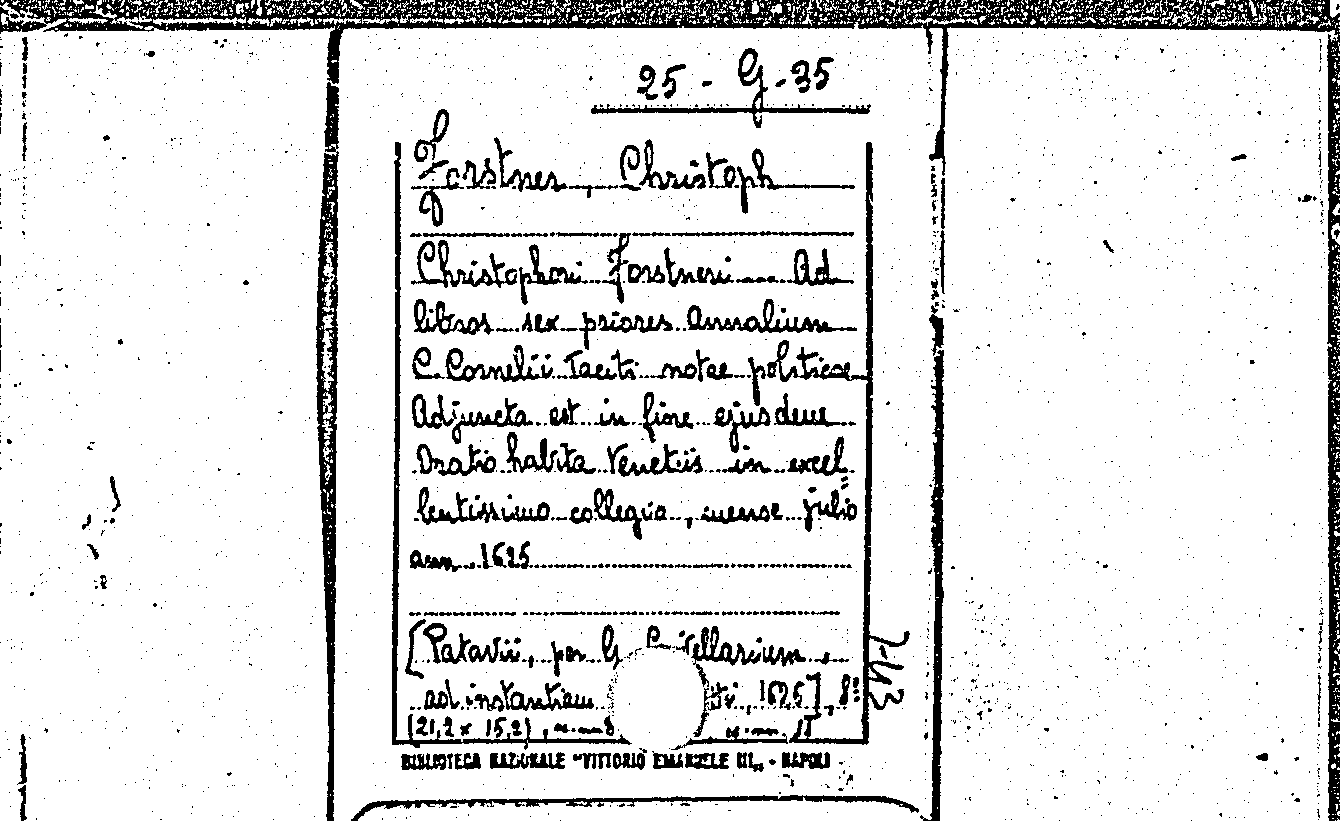 25 - G - 35
Forstner, Christoph
Christophori Forstneri Ad
libros sex priores Annalium
C. Cornelii Taciti notae politicae
Adjuncta est in fine ejusdem
Oratio habita Venetiis in excel=
lentissimo collegio, mense julio
ann. 1625
[Patavii, per G tellarium,
ad instantiam ti, 1625], 8º
(21,2 x 15,2),
BIBLIOTECA NAZIONALE "VITTORIO EMANUELE III„ - NAPOLI